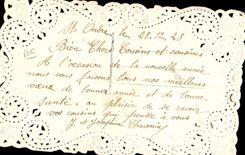 St Ambre, le 28.12.28
Bien Chers Cousins et cousines
A l'occasion de la nouvelle année
nous vous faisons tous nos meilleurs
vœux de bonne année et de bonne
santé, au plaisir de se revoir
vos cousins qui pense à vous
J et Joséphine